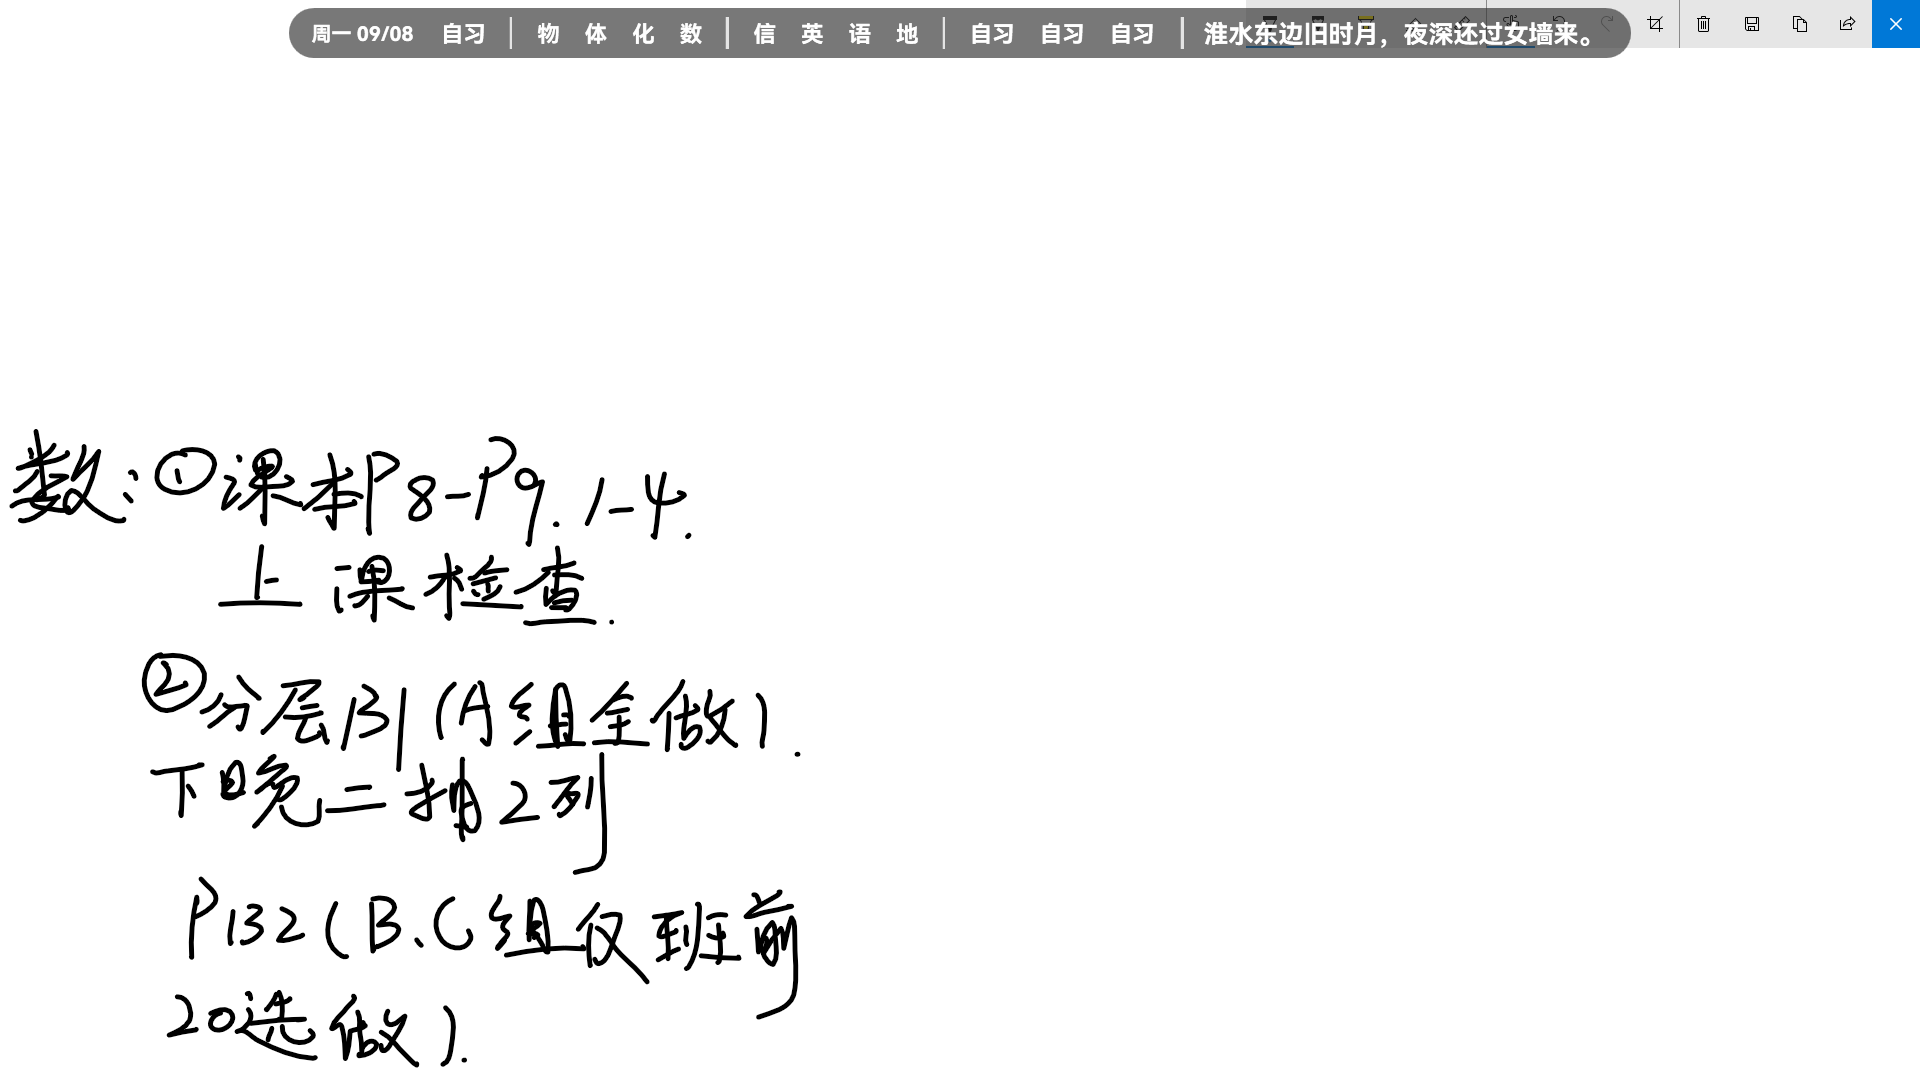 周一 09/08 自习 | 物 体 化 数 | 信 英 语 地 | 自习 自习 自习 | 淮水东边旧时月，夜深还过女墙来。
数：①课本P8-P9. 1-4.
上课检查.
②分层131(A组全做).
下晚二抽2列
P132(B、C组仅班前
20选做).